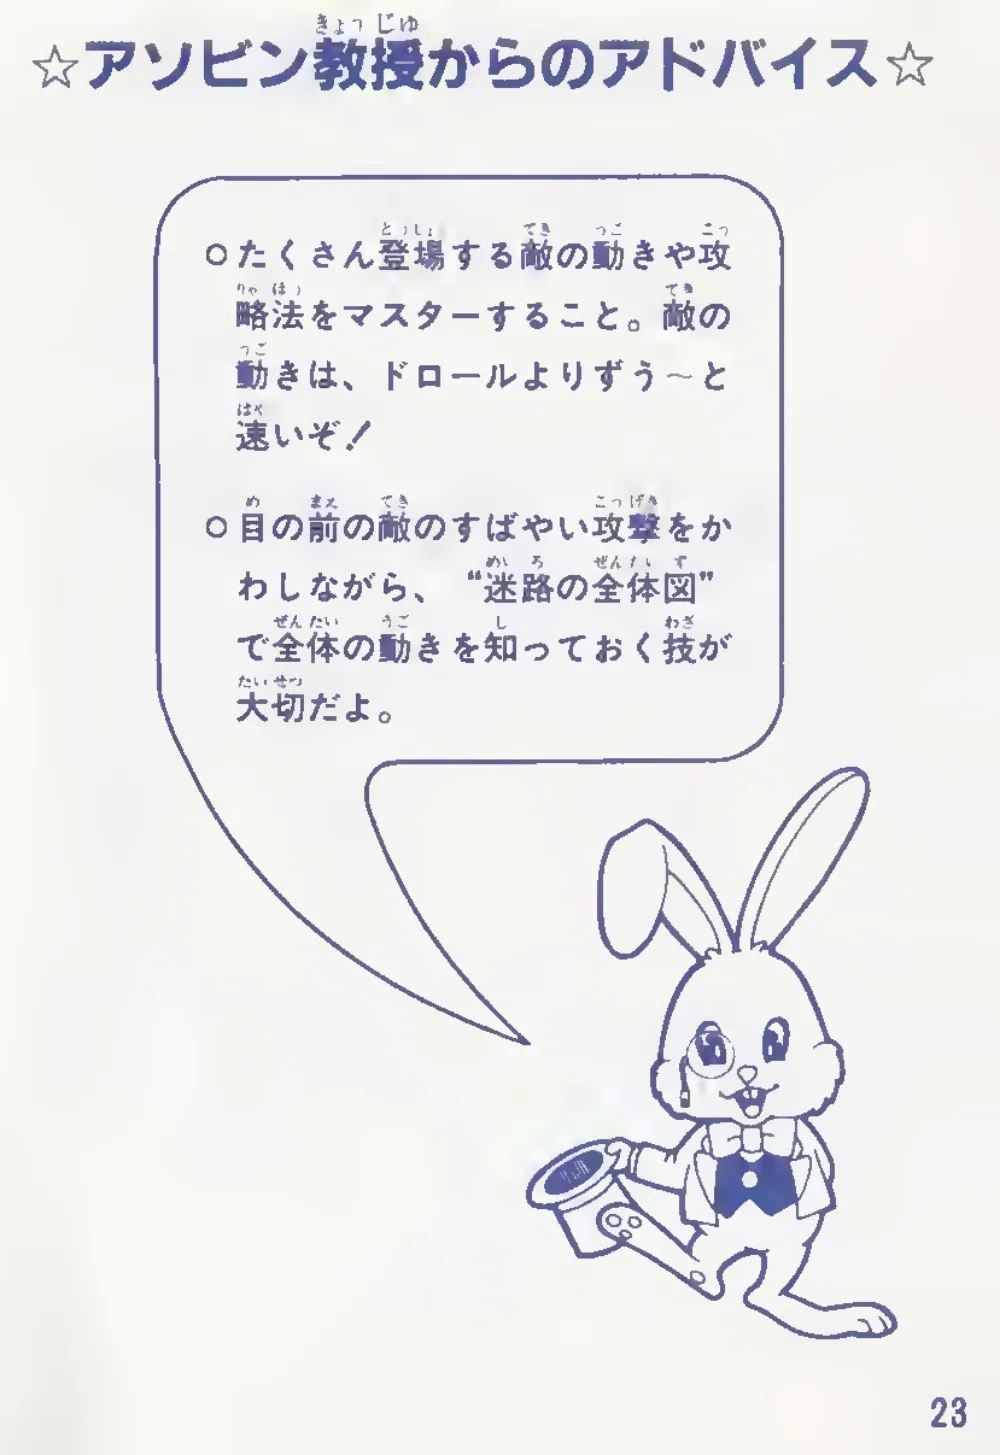 ☆アソビン教授からのアドバイス☆
○たくさん登場する敵の動きや攻
略法をマスターすること。敵の
動きは、ドロールよりずう〜と
速いぞ！
○目の前の敵のすばやい攻撃をか
わしながら、“迷路の全体図”
で全体の動きを知っておく技が
大切だよ。
23